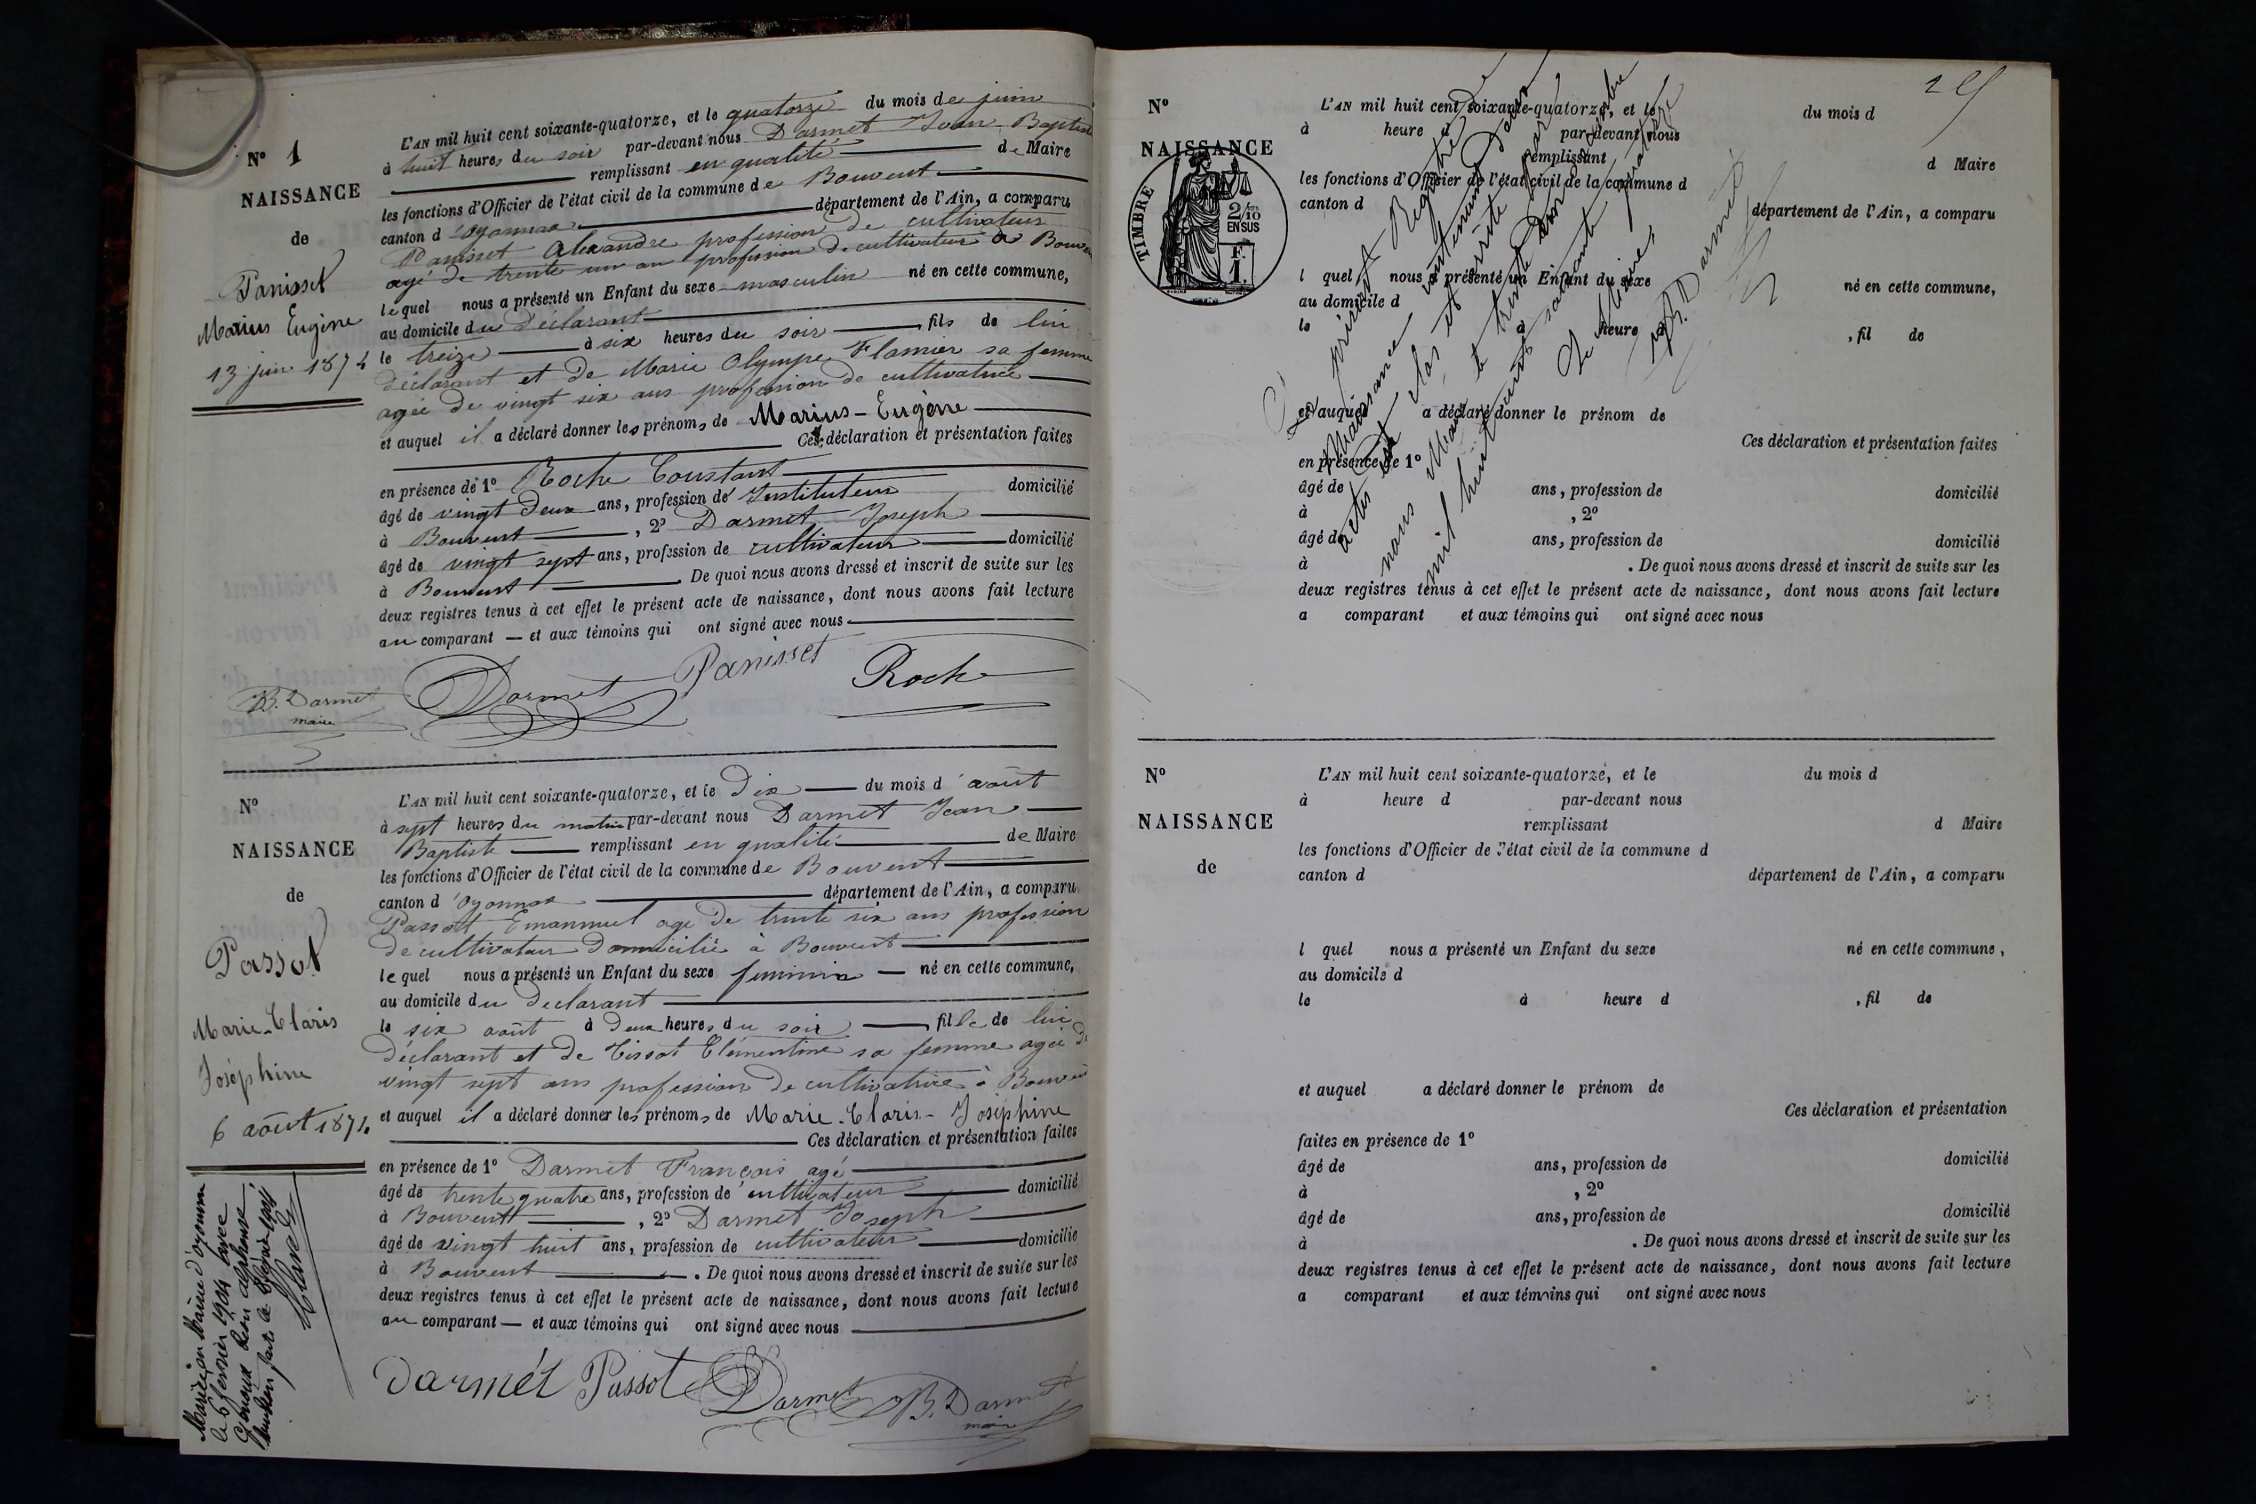 N° 1
NAISSANCE
de
Panisset
Marius Eugène
13 juin 1874
L'AN mil huit cent soixante-quatorze, et le quatorze du mois de juin
à huit heures du soir par-devant nous Darmet Jean Baptiste
remplissant en qualité de Maire
les fonctions d'Officier de l'état civil de la commune de Bouvent
canton d'oyonnax département de l'Ain, a comparu
Panisset Alexandre profession de cultivateur
agé de trente un an profession de cultivateur à Bouvent
lequel nous a présenté un Enfant du sexe masculin né en cette commune,
au domicile du déclarant
le treize à six heures du soir fils de lui
déclarant et de Marie Olympe Flamier sa femme
agée de vingt six ans profession de cultivatrice
et auquel il a déclaré donner les prénoms de Marius-Eugène
Ces déclaration et présentation faites
en présence de 1° Roche Constant
âgé de vingt deux ans, profession de Instituteur domicilié
à Bouvent , 2° Darmet Joseph
âgé de vingt sept ans, profession de cultivateur domicilié
à Bouvent . De quoi nous avons dressé et inscrit de suite sur les
deux registres tenus à cet effet le présent acte de naissance, dont nous avons fait lecture
au comparant — et aux témoins qui ont signé avec nous
B. Darmet Darmet Panisset Roche
maire
N°
NAISSANCE
de
Passot
Marie-Claris
Joséphine
6 août 1874
L'AN mil huit cent soixante-quatorze, et le Dix du mois d'août
à sept heures du matin par-devant nous Darmet Jean
Baptiste remplissant en qualité de Maire
les fonctions d'Officier de l'état civil de la commune de Bouvent
canton d'oyonnax département de l'Ain, a comparu
Passot Emanuel age de trente six ans profession
de cultivateur domicilié à Bouvent
lequel nous a présenté un Enfant du sexe feminin — né en cette commune,
au domicile du declarant
le six août à deux heures du soir fille de lui
déclarant et de Tissot Clémentine sa femme agée de
vingt sept ans profession de cultivatrice à Bouvent
et auquel il a déclaré donner les prénoms de Marie-Claris-Joséphine
Ces déclaration et présentation faites
en présence de 1° Darmet François agé
âgé de trente quatre ans, profession de cultivateur domicilié
à Bouvent , 2° Darmet Joseph
âgé de vingt huit ans, profession de cultivateur domicilié
à Bouvent . De quoi nous avons dressé et inscrit de suite sur les
deux registres tenus à cet effet le présent acte de naissance, dont nous avons fait lecture
au comparant — et aux témoins qui ont signé avec nous
darmet Passot Darmet B. Darmet
maire
Mariée en Mairie d'oyonnax
le 6 février 1904 avec
29
N°
NAISSANCE
TIMBRE
2/10
EN SUS
F.
1.
L'AN mil huit cent soixante-quatorze, et le du mois d
à heure d par-devant nous
remplissant d Maire
les fonctions d'Officier de l'état civil de la commune d
canton d département de l'Ain, a comparu
l quel nous a présenté un Enfant du sexe né en cette commune,
au domicile d
le à heure d , fil de
et auquel a déclaré donner le prénom de
Ces déclaration et présentation faites
en présence de 1°
âgé de ans, profession de domicilié
à , 2°
âgé de ans, profession de domicilié
à . De quoi nous avons dressé et inscrit de suite sur les
deux registres tenus à cet effet le présent acte de naissance, dont nous avons fait lecture
a comparant et aux témoins qui ont signé avec nous
Le présent Registre de
Naissance contenant Deux
actes est clos et arrêté par
nous Maire le trente un Décembre
mil huit cent soixante quatorze
Le Maire,
B. Darmet
N°
NAISSANCE
de
L'AN mil huit cent soixante-quatorze, et le du mois d
à heure d par-devant nous
remplissant d Maire
les fonctions d'Officier de l'état civil de la commune d
canton d département de l'Ain, a comparu
l quel nous a présenté un Enfant du sexe né en cette commune,
au domicile d
le à heure d , fil de
et auquel a déclaré donner le prénom de
Ces déclaration et présentation
faites en présence de 1°
âgé de ans, profession de domicilié
à , 2°
âgé de ans, profession de domicilié
à . De quoi nous avons dressé et inscrit de suite sur les
deux registres tenus à cet effet le présent acte de naissance, dont nous avons fait lecture
a comparant et aux témoins qui ont signé avec nous